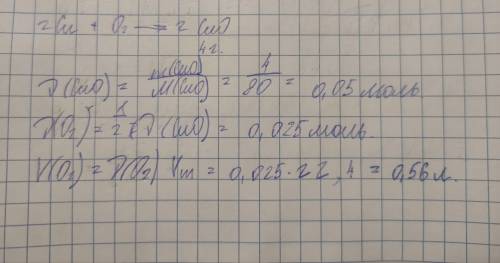 2Cu + O₂ = 2CuO
4г.
ν(CuO) = m(CuO)/M(CuO) = 4/80 = 0,05 моль
ν(O₂) = 1/2 ν(CuO) = 0,025 моль.
V(O₂) = ν(O₂) Vm = 0,025·22,4 = 0,56 л.